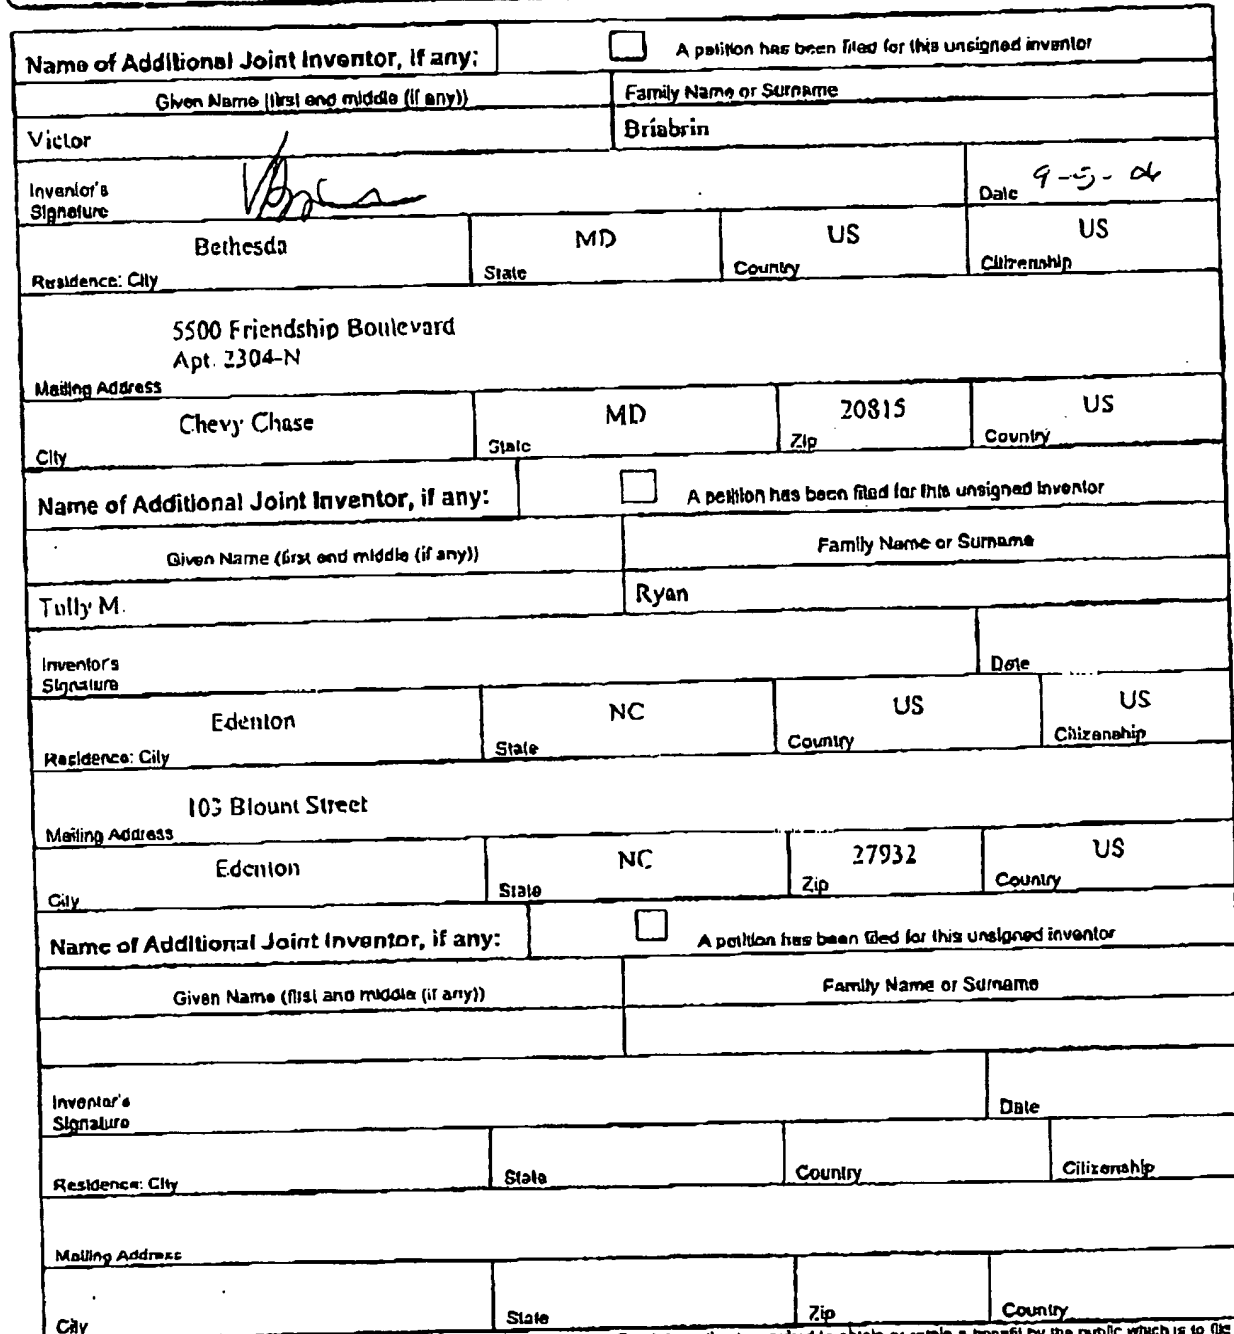 Name of Additional Joint Inventor, if any: A petition has been filed for this unsigned inventor
Given Name (first and middle (if any)) Family Name or Surname
Victor Briabrin
Inventor's Signature Date 9-5-06
Bethesda MD US US
Residence: City State Country Citizenship
5500 Friendship Boulevard
Apt. 2304-N
Mailing Address
Chevy Chase MD 20815 US
City State Zip Country
Name of Additional Joint Inventor, if any: A petition has been filed for this unsigned inventor
Given Name (first and middle (if any)) Family Name or Surname
Tully M. Ryan
Inventor's Signature Date
Edenton NC US US
Residence: City State Country Citizenship
103 Blount Street
Mailing Address
Edenton NC 27932 US
City State Zip Country
Name of Additional Joint Inventor, if any: A petition has been filed for this unsigned inventor
Given Name (first and middle (if any)) Family Name or Surname
Inventor's Signature Date
Residence: City State Country Citizenship
Mailing Address
City State Zip Country
by the public which is to file